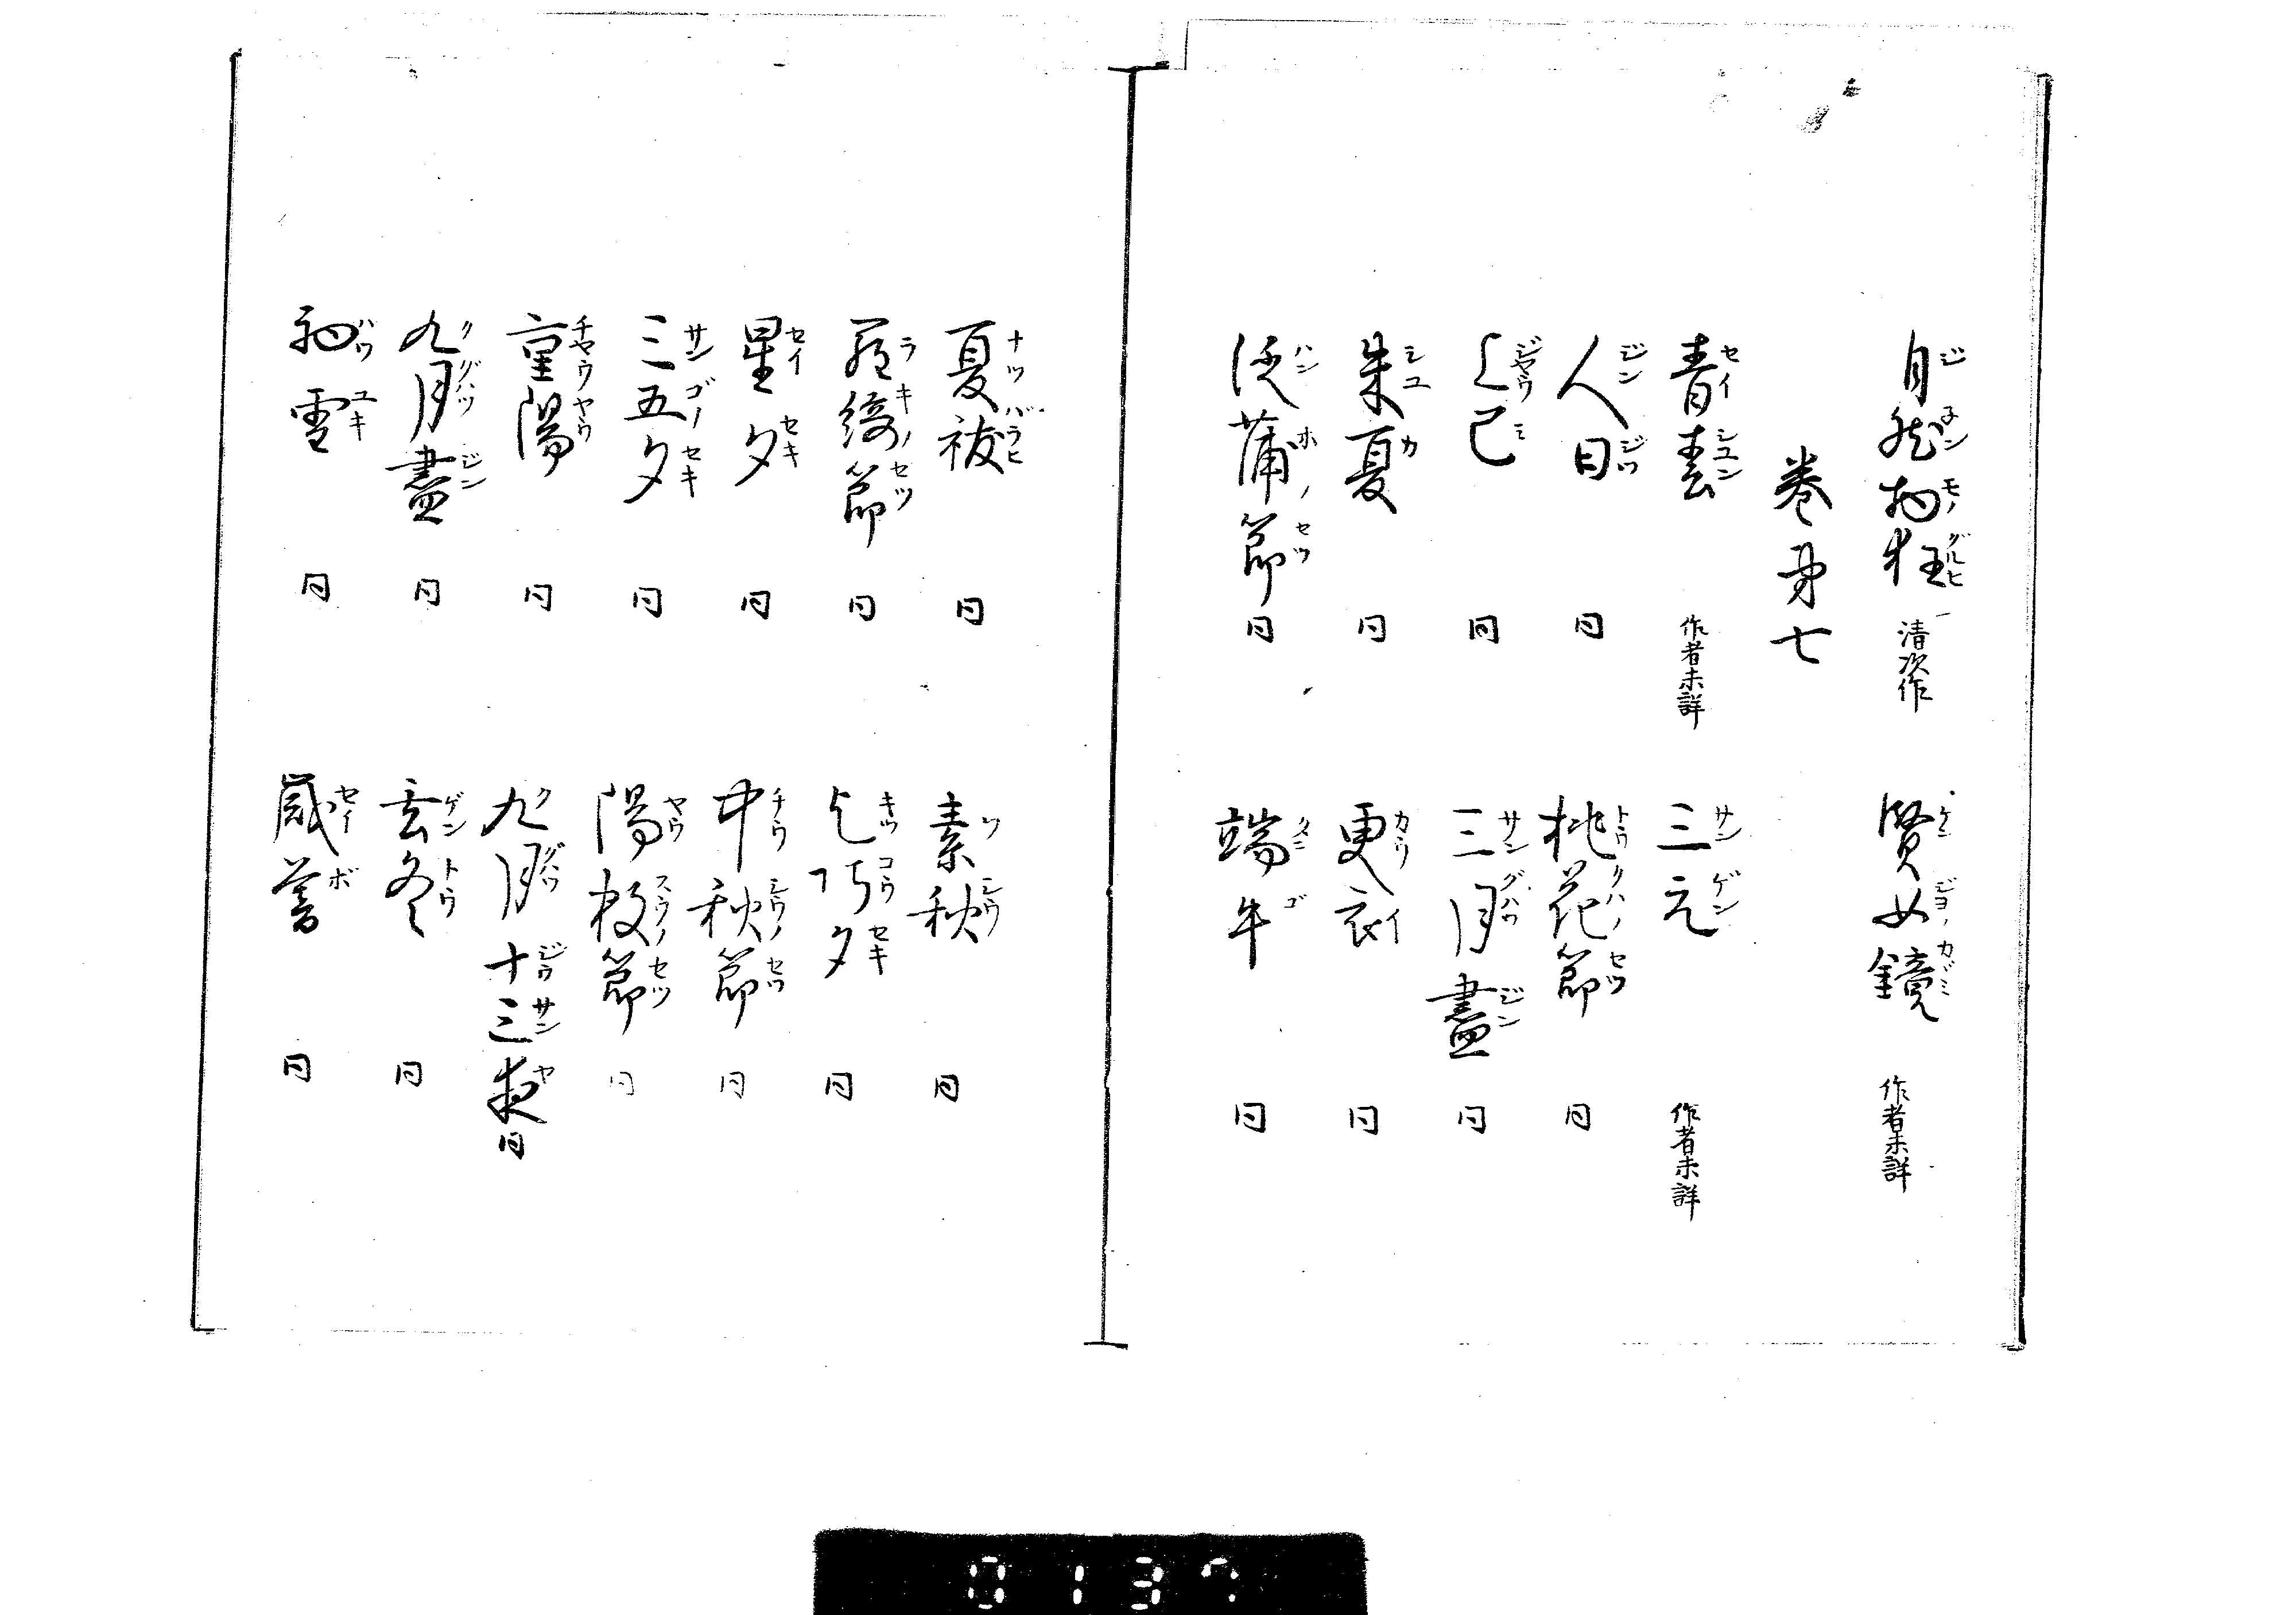 自然物狂 清次作 賢女鏡 作者未詳
巻第七
青春 作者未詳 三元 作者未詳
人日 同 桃花節 同
上巳 同 三月盡 同
朱夏 同 更衣 同
泛蒲節 同 端午 同
夏祓 同 素秋 同
羅綺節 同 乞巧夕 同
星夕 同 中秋節 同
三五夕 同 陽数節 同
重陽 同 九月十三夜 同
九月盡 同 玄冬 同
初雪 同 歳暮 同
0137